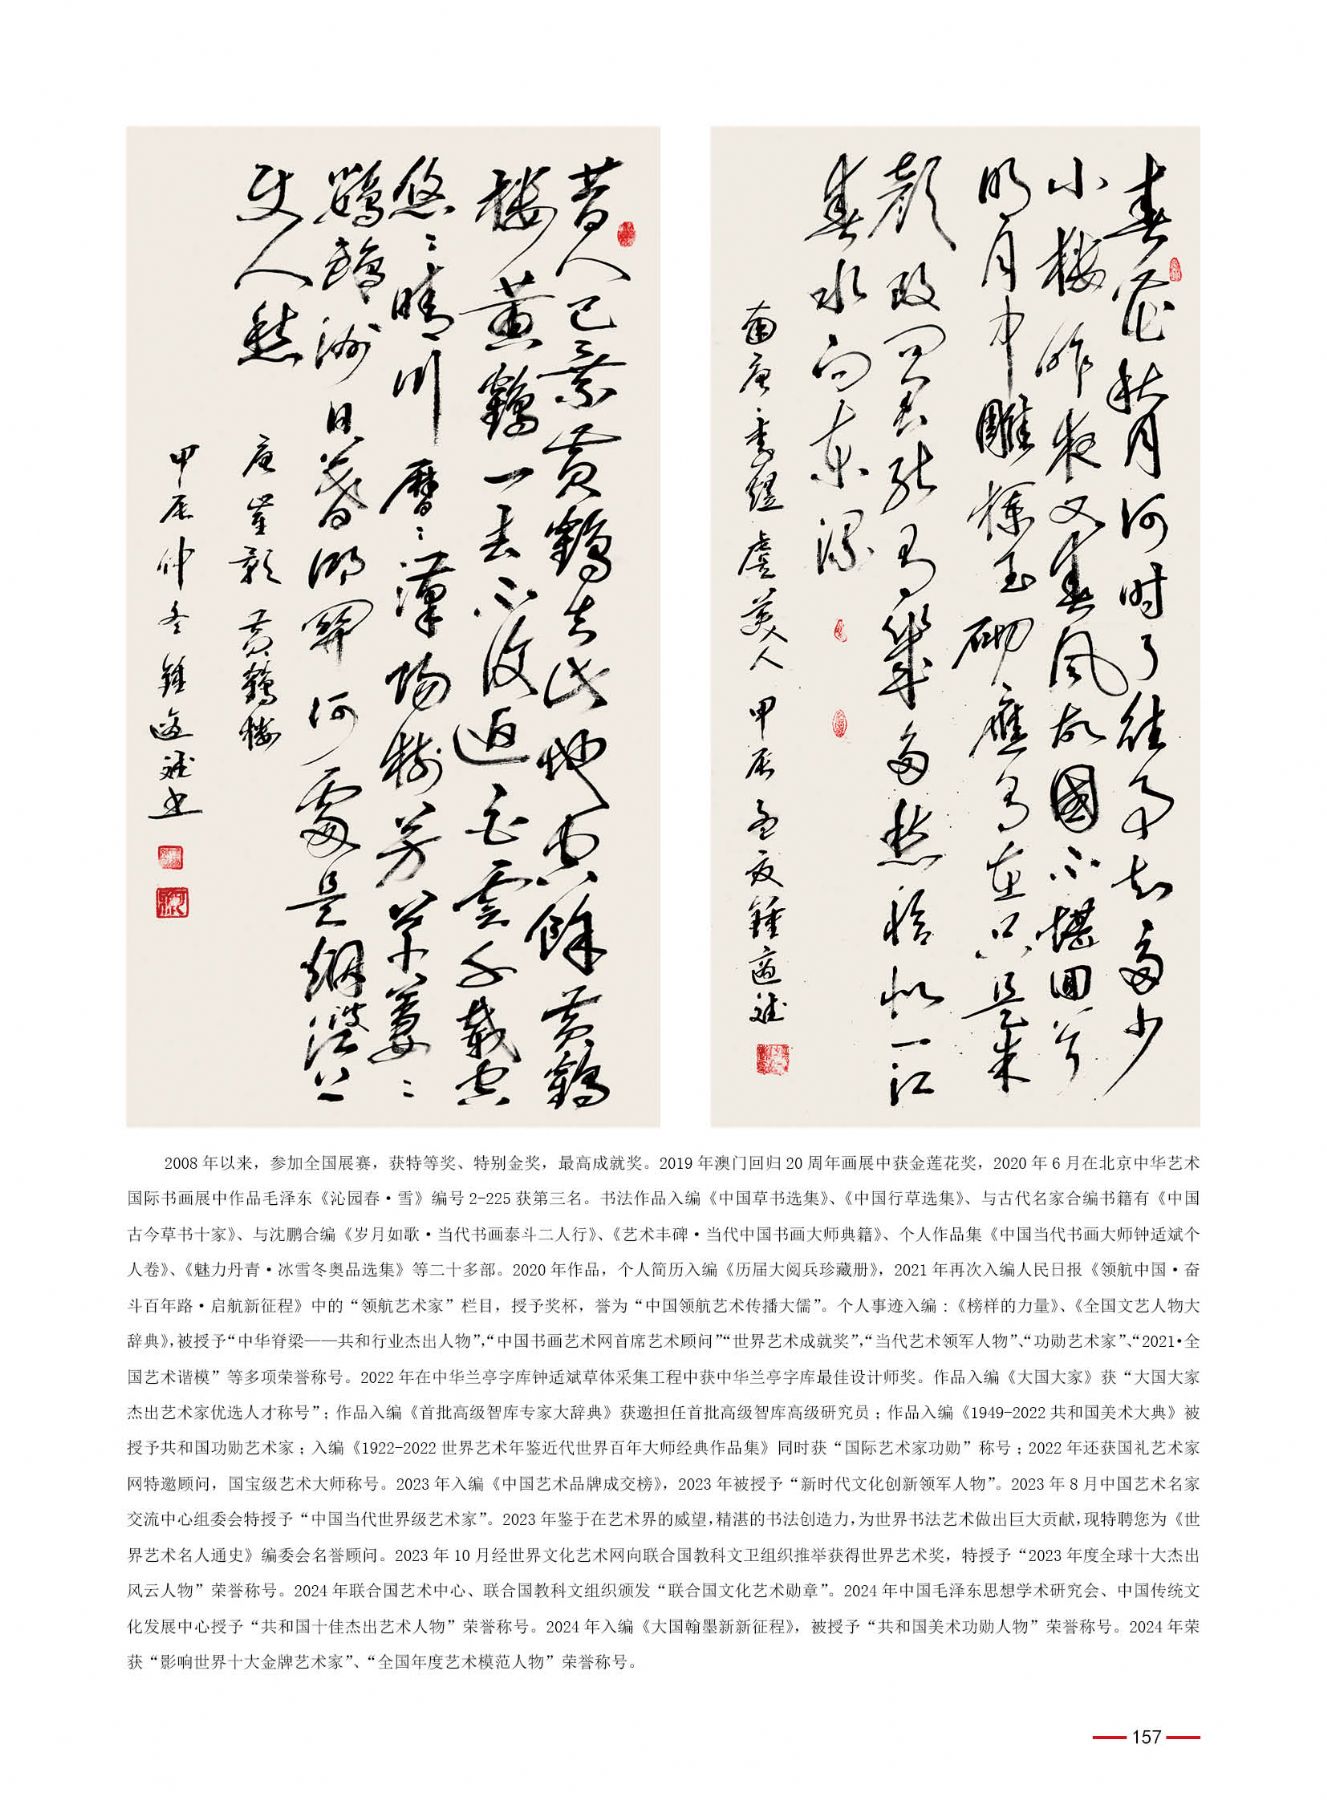 昔人已乘黄鶴去此地空餘黄鶴
楼黄鶴一去不復返白雲千載空
悠々晴川曆々漢陽樹芳草萋々
鸚鵡洲日暮鄉關何處是烟波江上
使人愁
唐崔颢黄鶴楼
甲辰仲冬鍾適斌书
春花秋月何时了往事知多少
小楼昨夜又春风故國不堪回首
明月中雕欄玉砌應犹在只是朱
颜改问君能有幾多愁恰似一江
春水向东流
南唐李煜虞美人甲辰孟夏鍾適斌
2008 年以来，参加全国展赛，获特等奖、特别金奖，最高成就奖。2019 年澳门回归 20 周年画展中获金莲花奖，2020 年 6 月在北京中华艺术
国际书画展中作品毛泽东《沁园春·雪》编号 2-225 获第三名。书法作品入编《中国草书选集》、《中国行草选集》、与古代名家合编书籍有《中国
古今草书十家》、与沈鹏合编《岁月如歌·当代书画泰斗二人行》、《艺术丰碑·当代中国书画大师典籍》、个人作品集《中国当代书画大师钟适斌个
人卷》、《魅力丹青·冰雪冬奥品选集》等二十多部。2020 年作品，个人简历入编《历届大阅兵珍藏册》，2021 年再次入编人民日报《领航中国·奋
斗百年路·启航新征程》中的“领航艺术家”栏目，授予奖杯，誉为“中国领航艺术传播大儒”。个人事迹入编：《榜样的力量》、《全国文艺人物大
辞典》，被授予“中华脊梁——共和行业杰出人物”，“中国书画艺术网首席艺术顾问”“世界艺术成就奖”，“当代艺术领军人物”、“功勋艺术家”、“2021·全
国艺术谐模”等多项荣誉称号。2022 年在中华兰亭字库钟适斌草体采集工程中获中华兰亭字库最佳设计师奖。作品入编《大国大家》获“大国大家
杰出艺术家优选人才称号”；作品入编《首批高级智库专家大辞典》获邀担任首批高级智库高级研究员；作品入编《1949-2022 共和国美术大典》被
授予共和国功勋艺术家；入编《1922-2022 世界艺术年鉴近代世界百年大师经典作品集》同时获“国际艺术家功勋”称号；2022 年还获国礼艺术家
网特邀顾问，国宝级艺术大师称号。2023 年入编《中国艺术品牌成交榜》，2023 年被授予“新时代文化创新领军人物”。2023 年 8 月中国艺术名家
交流中心组委会特授予“中国当代世界级艺术家”。2023 年鉴于在艺术界的威望，精湛的书法创造力，为世界书法艺术做出巨大贡献，现特聘您为《世
界艺术名人通史》编委会名誉顾问。2023 年 10 月经世界文化艺术网向联合国教科文卫组织推举获得世界艺术奖，特授予“2023 年度全球十大杰出
风云人物”荣誉称号。2024 年联合国艺术中心、联合国教科文组织颁发“联合国文化艺术勋章”。2024 年中国毛泽东思想学术研究会、中国传统文
化发展中心授予“共和国十佳杰出艺术人物”荣誉称号。2024 年入编《大国翰墨新新征程》，被授予“共和国美术功勋人物”荣誉称号。2024 年荣
获“影响世界十大金牌艺术家”、“全国年度艺术模范人物”荣誉称号。
157